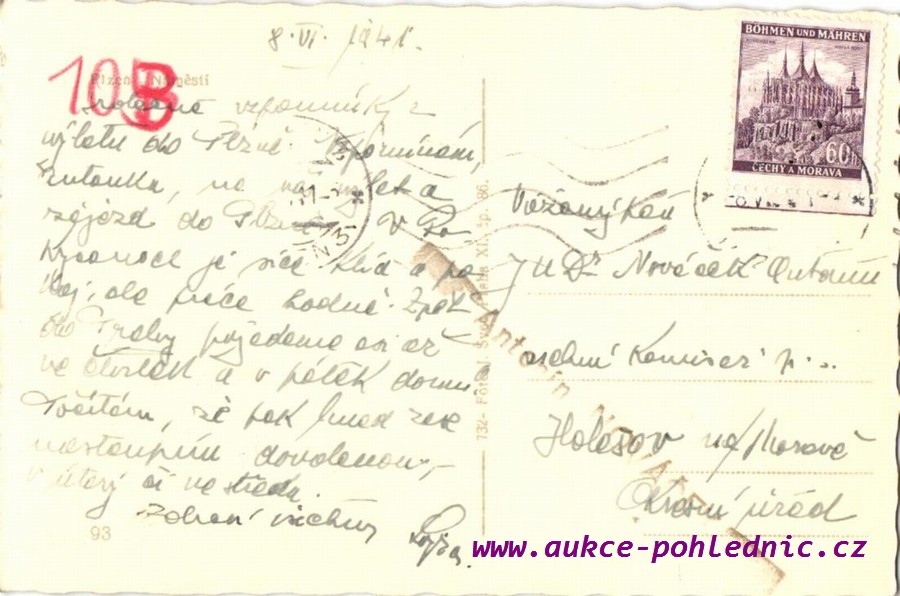 8. VI. 1941.
103
Plzeň Náměstí
vzpomínky z
výletu do Plzně. Vzpomínám,
na náš výlet a
zájezd do Plzně. V
je sice klid a po-
koj, ale práce hodně. Zpět
do Prahy pojedeme asi až
ve čtvrtek a v pátek domů.
Počítám, že pak hned zase
nastoupím dovolenou,
v úterý či ve středu.
Zdraví všechny
93
732- Foto
BÖHMEN UND MÄHREN
60h
ČECHY A MORAVA
Vážený pán
JUDr Nováček Antonín
komisař
Holešov na/Moravě
Okresní úřad
Antonín
www.aukce-pohlednic.cz